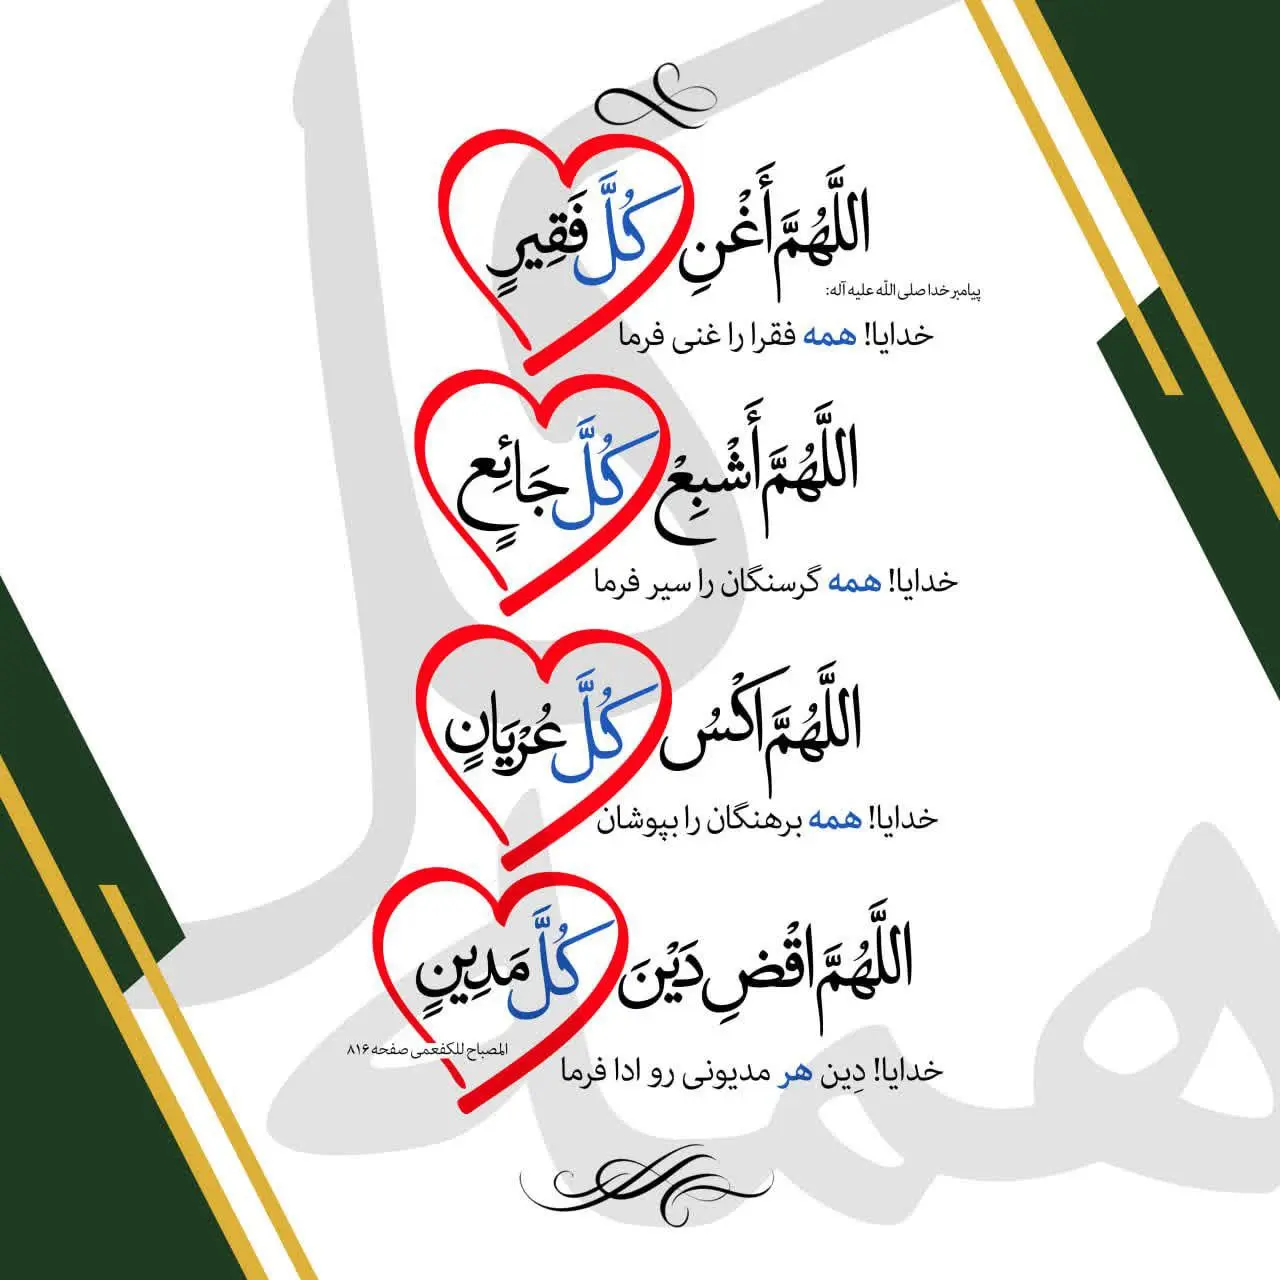 اللَّهُمَّ أَغْنِ كُلَّ فَقِيرٍ
پیامبر خدا صلی الله علیه آله:
خدایا! همه فقرا را غنی فرما
اللَّهُمَّ أَشْبِعْ كُلَّ جَائِعٍ
خدایا! همه گرسنگان را سیر فرما
اللَّهُمَّ اكْسُ كُلَّ عُرْيَانٍ
خدایا! همه برهنگان را بپوشان
اللَّهُمَّ اقْضِ دَيْنَ كُلَّ مَدِينٍ
المصباح للکفعمی صفحه ۸۱۶
خدایا! دِین هر مدیونی رو ادا فرما
کل
همه